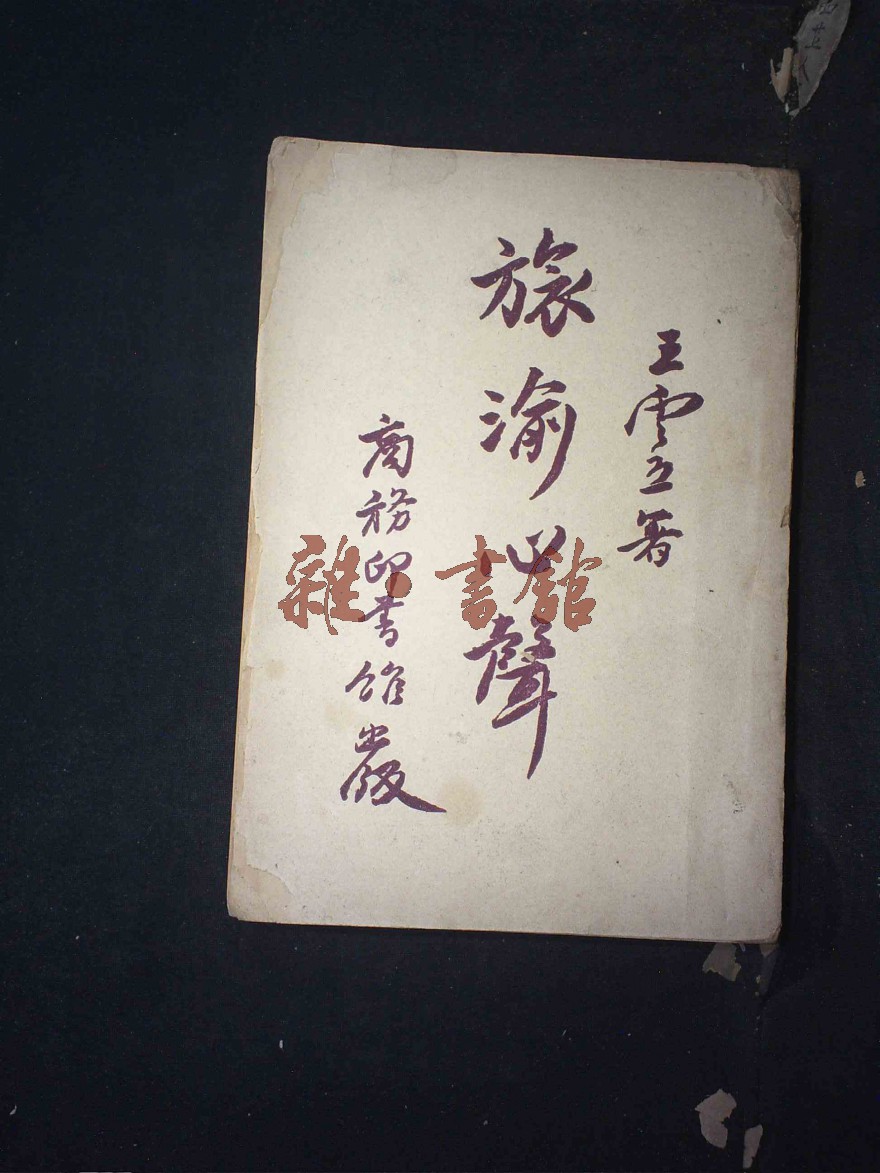 王雲五著
旅渝心聲
商務印書館出版
雜·書館